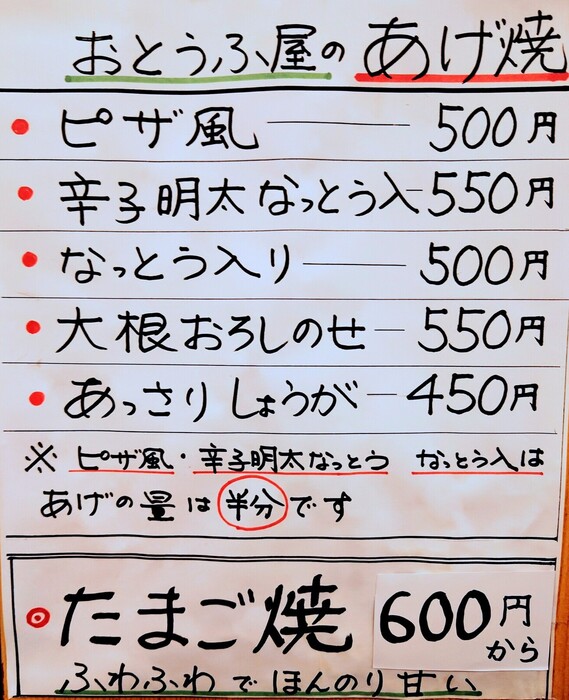 おとうふ屋の あげ焼
・ピザ風 ― 500円
・辛子明太なっとう入-550円
・なっとう入り ― 500円
・大根おろしのせ ― 550円
・あっさりしょうが ― 450円
※ ピザ風・辛子明太なっとう なっとう入は
あげの量は半分です
◉たまご焼 600円から
ふわふわでほんのり甘い